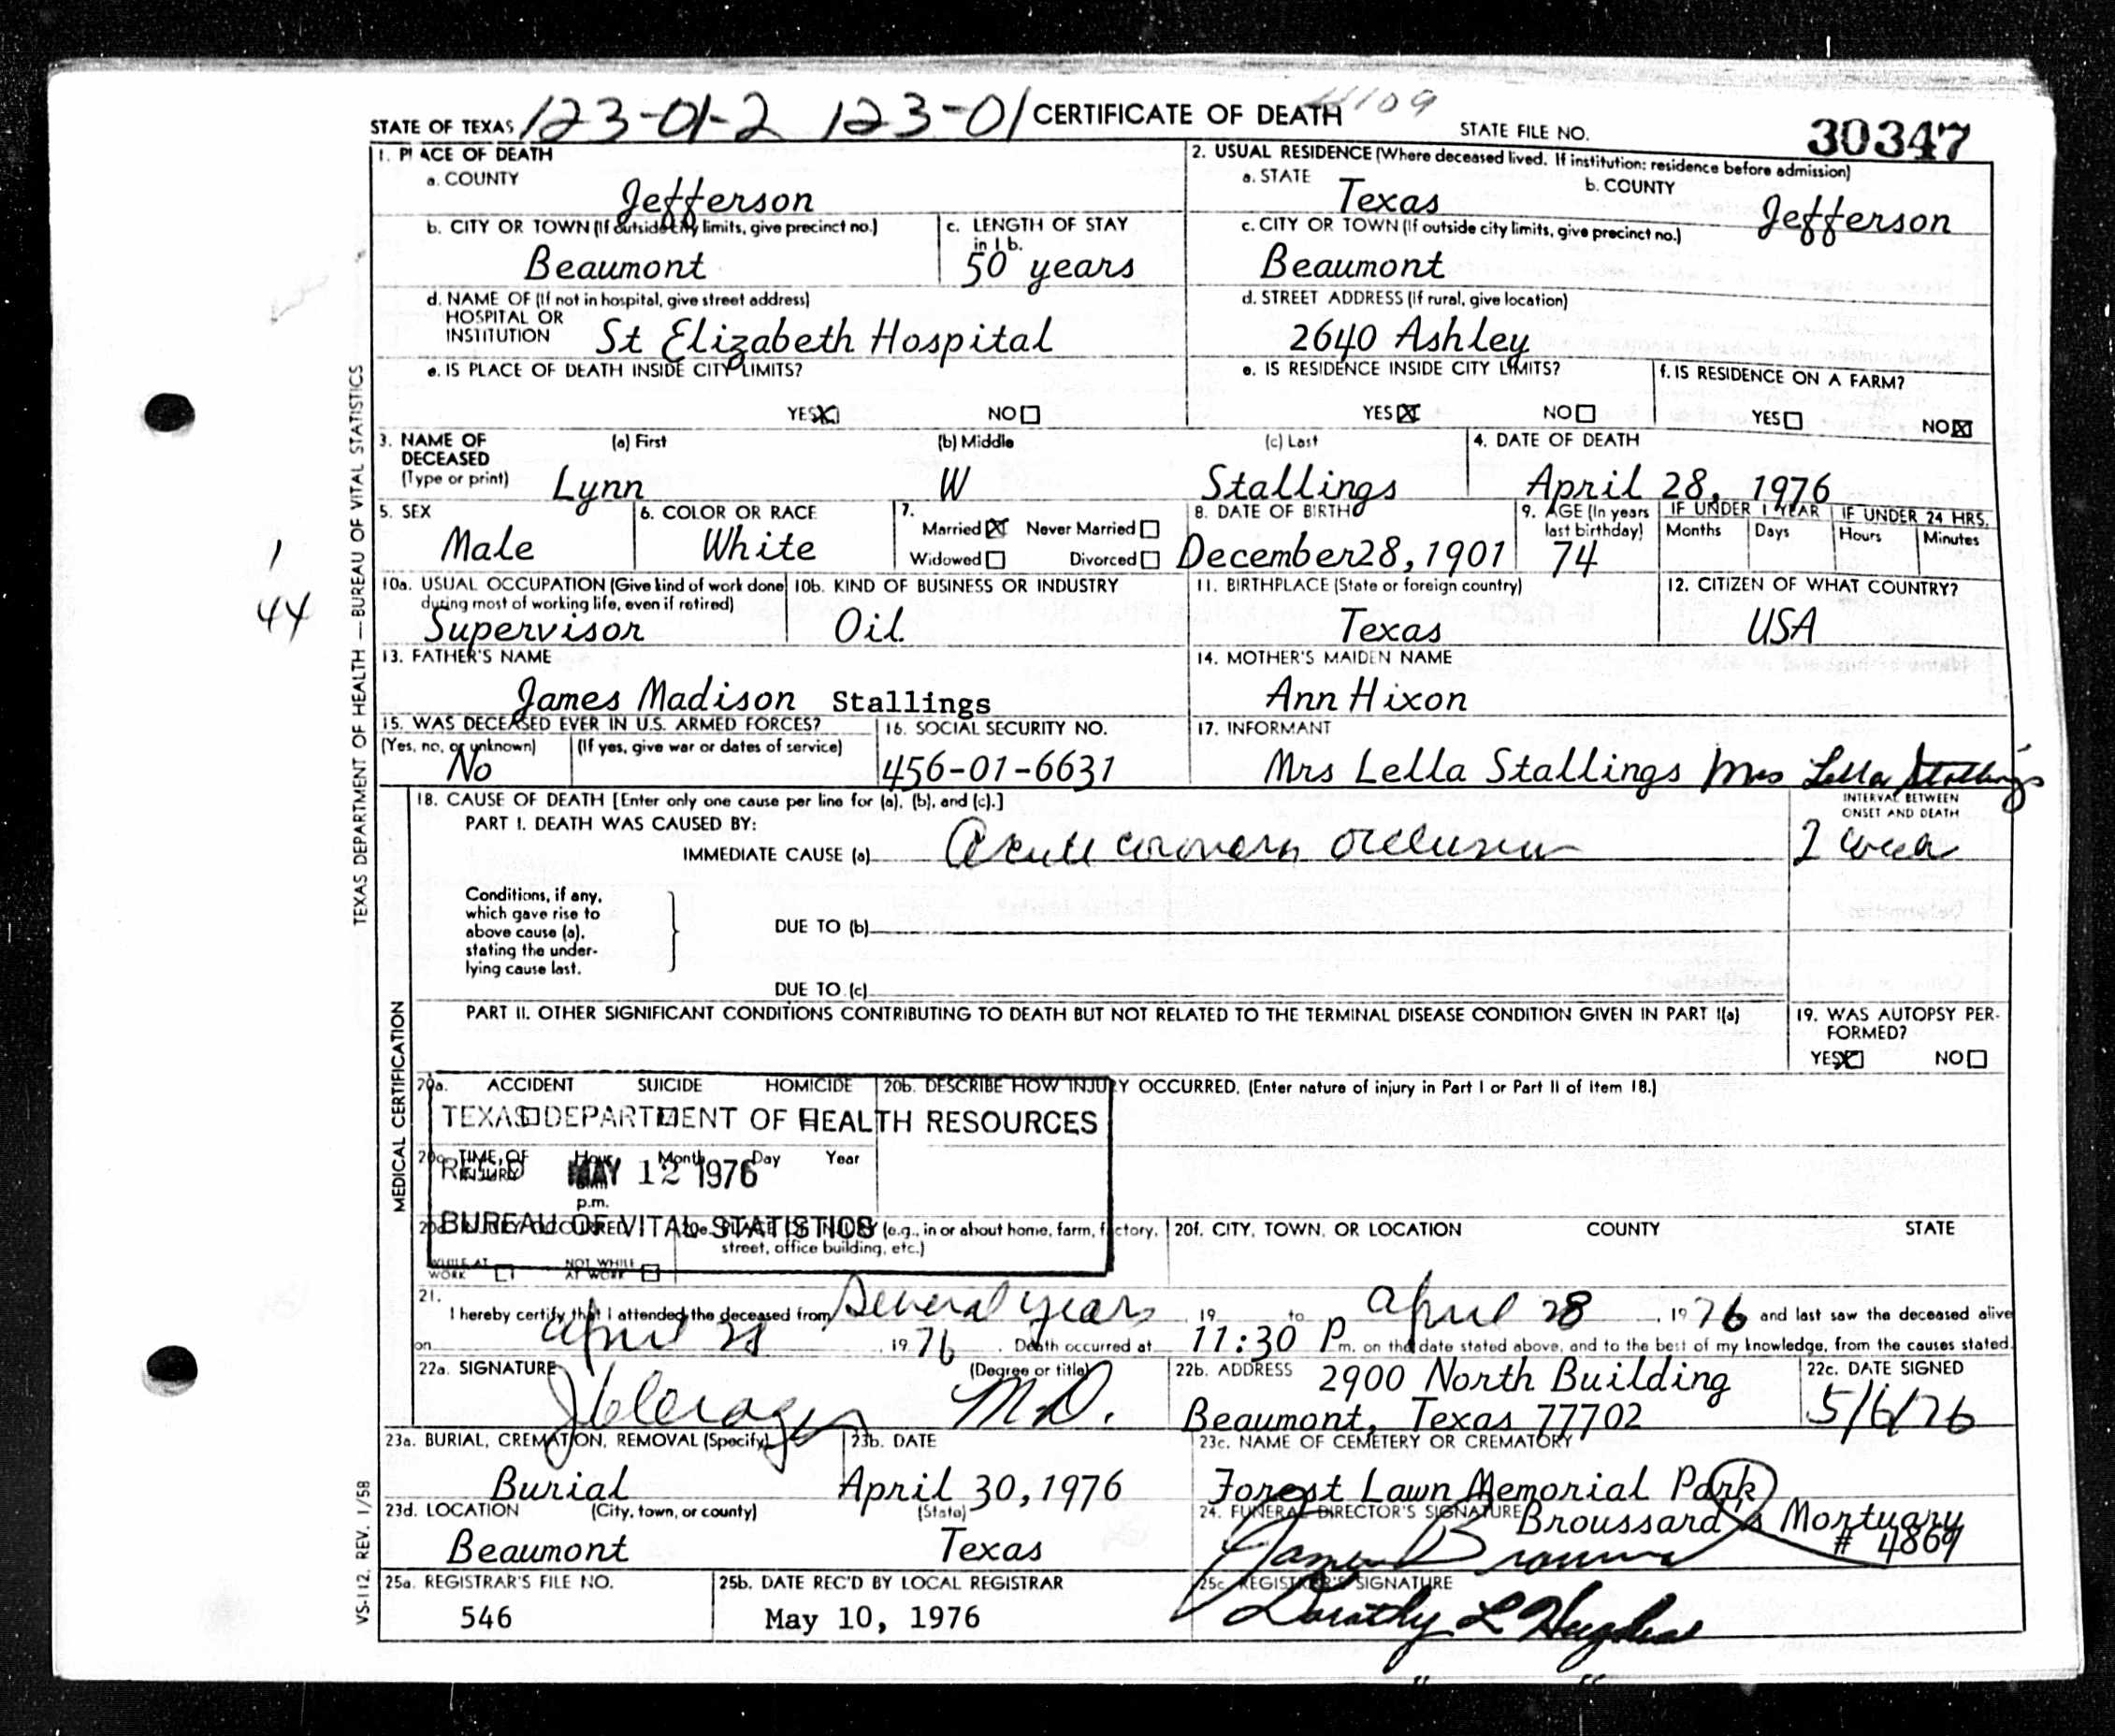 STATE OF TEXAS 123-01-2 123-01 CERTIFICATE OF DEATH STATE FILE NO. 30347
1. PLACE OF DEATH
a. COUNTY
Jefferson
b. CITY OR TOWN (If outside city limits, give precinct no.)
Beaumont
c. LENGTH OF STAY
in 1 b.
50 years
d. NAME OF (If not in hospital, give street address)
HOSPITAL OR
INSTITUTION St Elizabeth Hospital
e. IS PLACE OF DEATH INSIDE CITY LIMITS?
YES NO
2. USUAL RESIDENCE (Where deceased lived. If institution: residence before admission)
a. STATE Texas b. COUNTY Jefferson
c. CITY OR TOWN (If outside city limits, give precinct no.)
Beaumont
d. STREET ADDRESS (If rural, give location)
2640 Ashley
e. IS RESIDENCE INSIDE CITY LIMITS?
YES NO
f. IS RESIDENCE ON A FARM?
YES NO
3. NAME OF
DECEASED
(Type or print)
(a) First (b) Middle (c) Last
Lynn W Stallings
4. DATE OF DEATH
April 28, 1976
5. SEX
Male
6. COLOR OR RACE
White
7.
Married Never Married
Widowed Divorced
8. DATE OF BIRTH
December 28, 1901
9. AGE (In years
last birthday)
74
IF UNDER 1 YEAR
Months Days
IF UNDER 24 HRS.
Hours Minutes
10a. USUAL OCCUPATION (Give kind of work done
during most of working life, even if retired)
Supervisor
10b. KIND OF BUSINESS OR INDUSTRY
Oil
11. BIRTHPLACE (State or foreign country)
Texas
12. CITIZEN OF WHAT COUNTRY?
USA
13. FATHER'S NAME
James Madison Stallings
14. MOTHER'S MAIDEN NAME
Ann Hixon
15. WAS DECEASED EVER IN U.S. ARMED FORCES?
(Yes, no, or unknown) (If yes, give war or dates of service)
No
16. SOCIAL SECURITY NO.
456-01-6631
17. INFORMANT
Mrs Lella Stallings Mrs Lella Stallings
18. CAUSE OF DEATH [Enter only one cause per line for (a), (b), and (c).]
PART I. DEATH WAS CAUSED BY:
IMMEDIATE CAUSE (a) Acute coronary occlusion
INTERVAL BETWEEN
ONSET AND DEATH
Conditions, if any,
which gave rise to
above cause (a),
stating the under-
lying cause last.
DUE TO (b)
DUE TO (c)
PART II. OTHER SIGNIFICANT CONDITIONS CONTRIBUTING TO DEATH BUT NOT RELATED TO THE TERMINAL DISEASE CONDITION GIVEN IN PART I(a)
19. WAS AUTOPSY PER-
FORMED?
YES NO
20a. ACCIDENT SUICIDE HOMICIDE
20b. DESCRIBE HOW INJURY OCCURRED. (Enter nature of injury in Part I or Part II of item 18.)
TEXAS DEPARTMENT OF HEALTH RESOURCES
20c. TIME OF
INJURY
Hour Month Day Year
REC'D MAY 12 1976
p.m.
BUREAU OF VITAL STATISTICS
(e.g., in or about home, farm, factory,
street, office building, etc.)
WHILE AT
WORK
NOT WHILE
AT WORK
20f. CITY, TOWN, OR LOCATION COUNTY STATE
21.
I hereby certify that I attended the deceased from Several years, 19 to April 28, 1976 and last saw the deceased alive
on April 28, 1976. Death occurred at 11:30 P m. on the date stated above, and to the best of my knowledge, from the causes stated.
22a. SIGNATURE (Degree or title)
M.D.
22b. ADDRESS 2900 North Building
Beaumont, Texas 77702
22c. DATE SIGNED
5/6/76
23a. BURIAL, CREMATION, REMOVAL (Specify)
Burial
23b. DATE
April 30, 1976
23c. NAME OF CEMETERY OR CREMATORY
Forest Lawn Memorial Park
23d. LOCATION (City, town, or county) (State)
Beaumont Texas
24. FUNERAL DIRECTOR'S SIGNATURE Broussard's Mortuary
# 4869
25a. REGISTRAR'S FILE NO.
546
25b. DATE REC'D BY LOCAL REGISTRAR
May 10, 1976
25c. REGISTRAR'S SIGNATURE
Dorothy L Hughes
TEXAS DEPARTMENT OF HEALTH — BUREAU OF VITAL STATISTICS
MEDICAL CERTIFICATION
VS-112, REV. 1/58
1
44